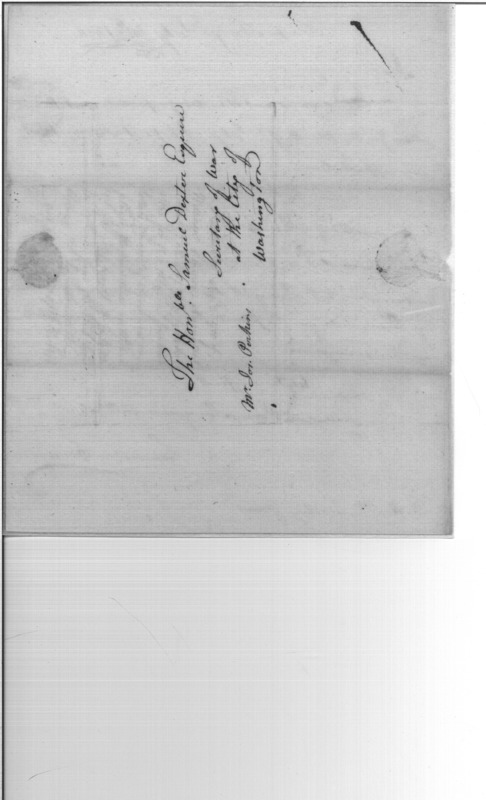 The Honble. Samuel Dexter Esquire
Secretary of War
at the City of
Washington
Mr Jon Perkins